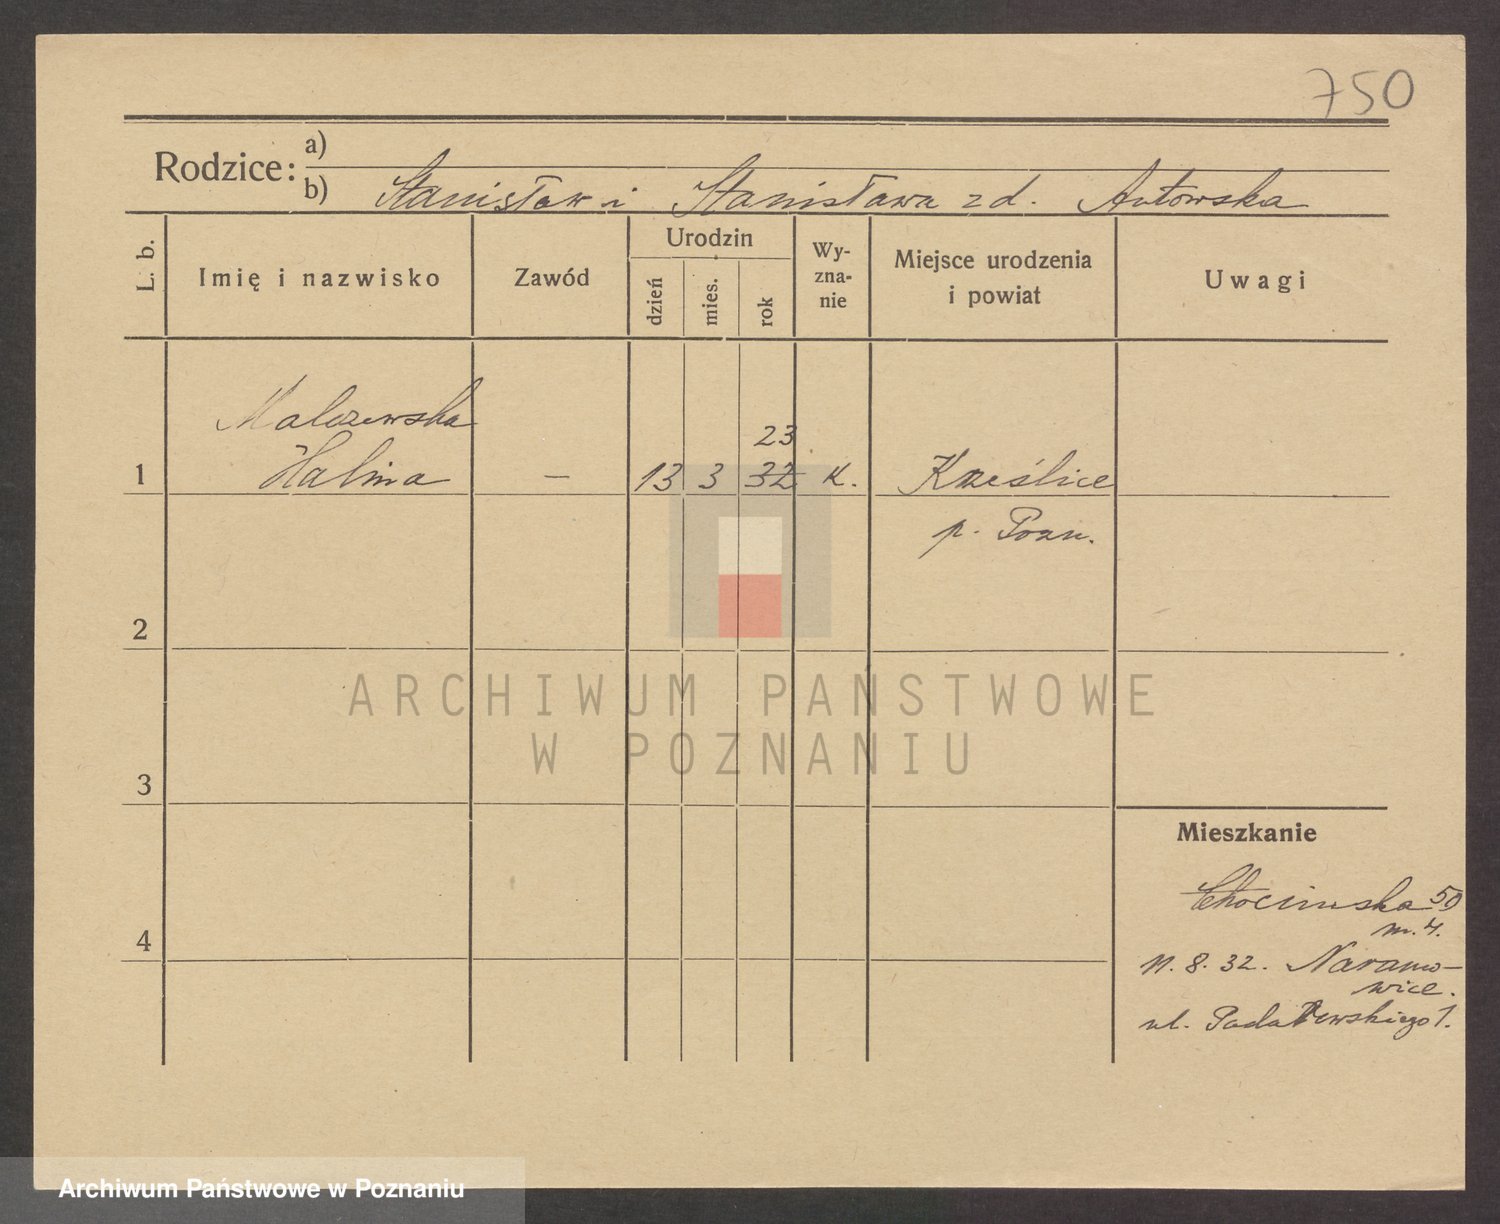 750
Rodzice: a)
b) Stanisław i Stanisława zd. Antowska
L. b.
Imię i nazwisko
Zawód
Urodzin
dzień
mies.
rok
Wy-
zna-
nie
Miejsce urodzenia
i powiat
Uwagi
Malczewska
23
1 Halina – 13 3 32 K. Krześlice
p. Pozn.
2
3
4
Mieszkanie
Chocimska 50
m. 4.
11. 8. 32. Naramo-
wice.
ul. Paderewskiego 1.
ARCHIWUM PAŃSTWOWE
W POZNANIU
Archiwum Państwowe w Poznaniu